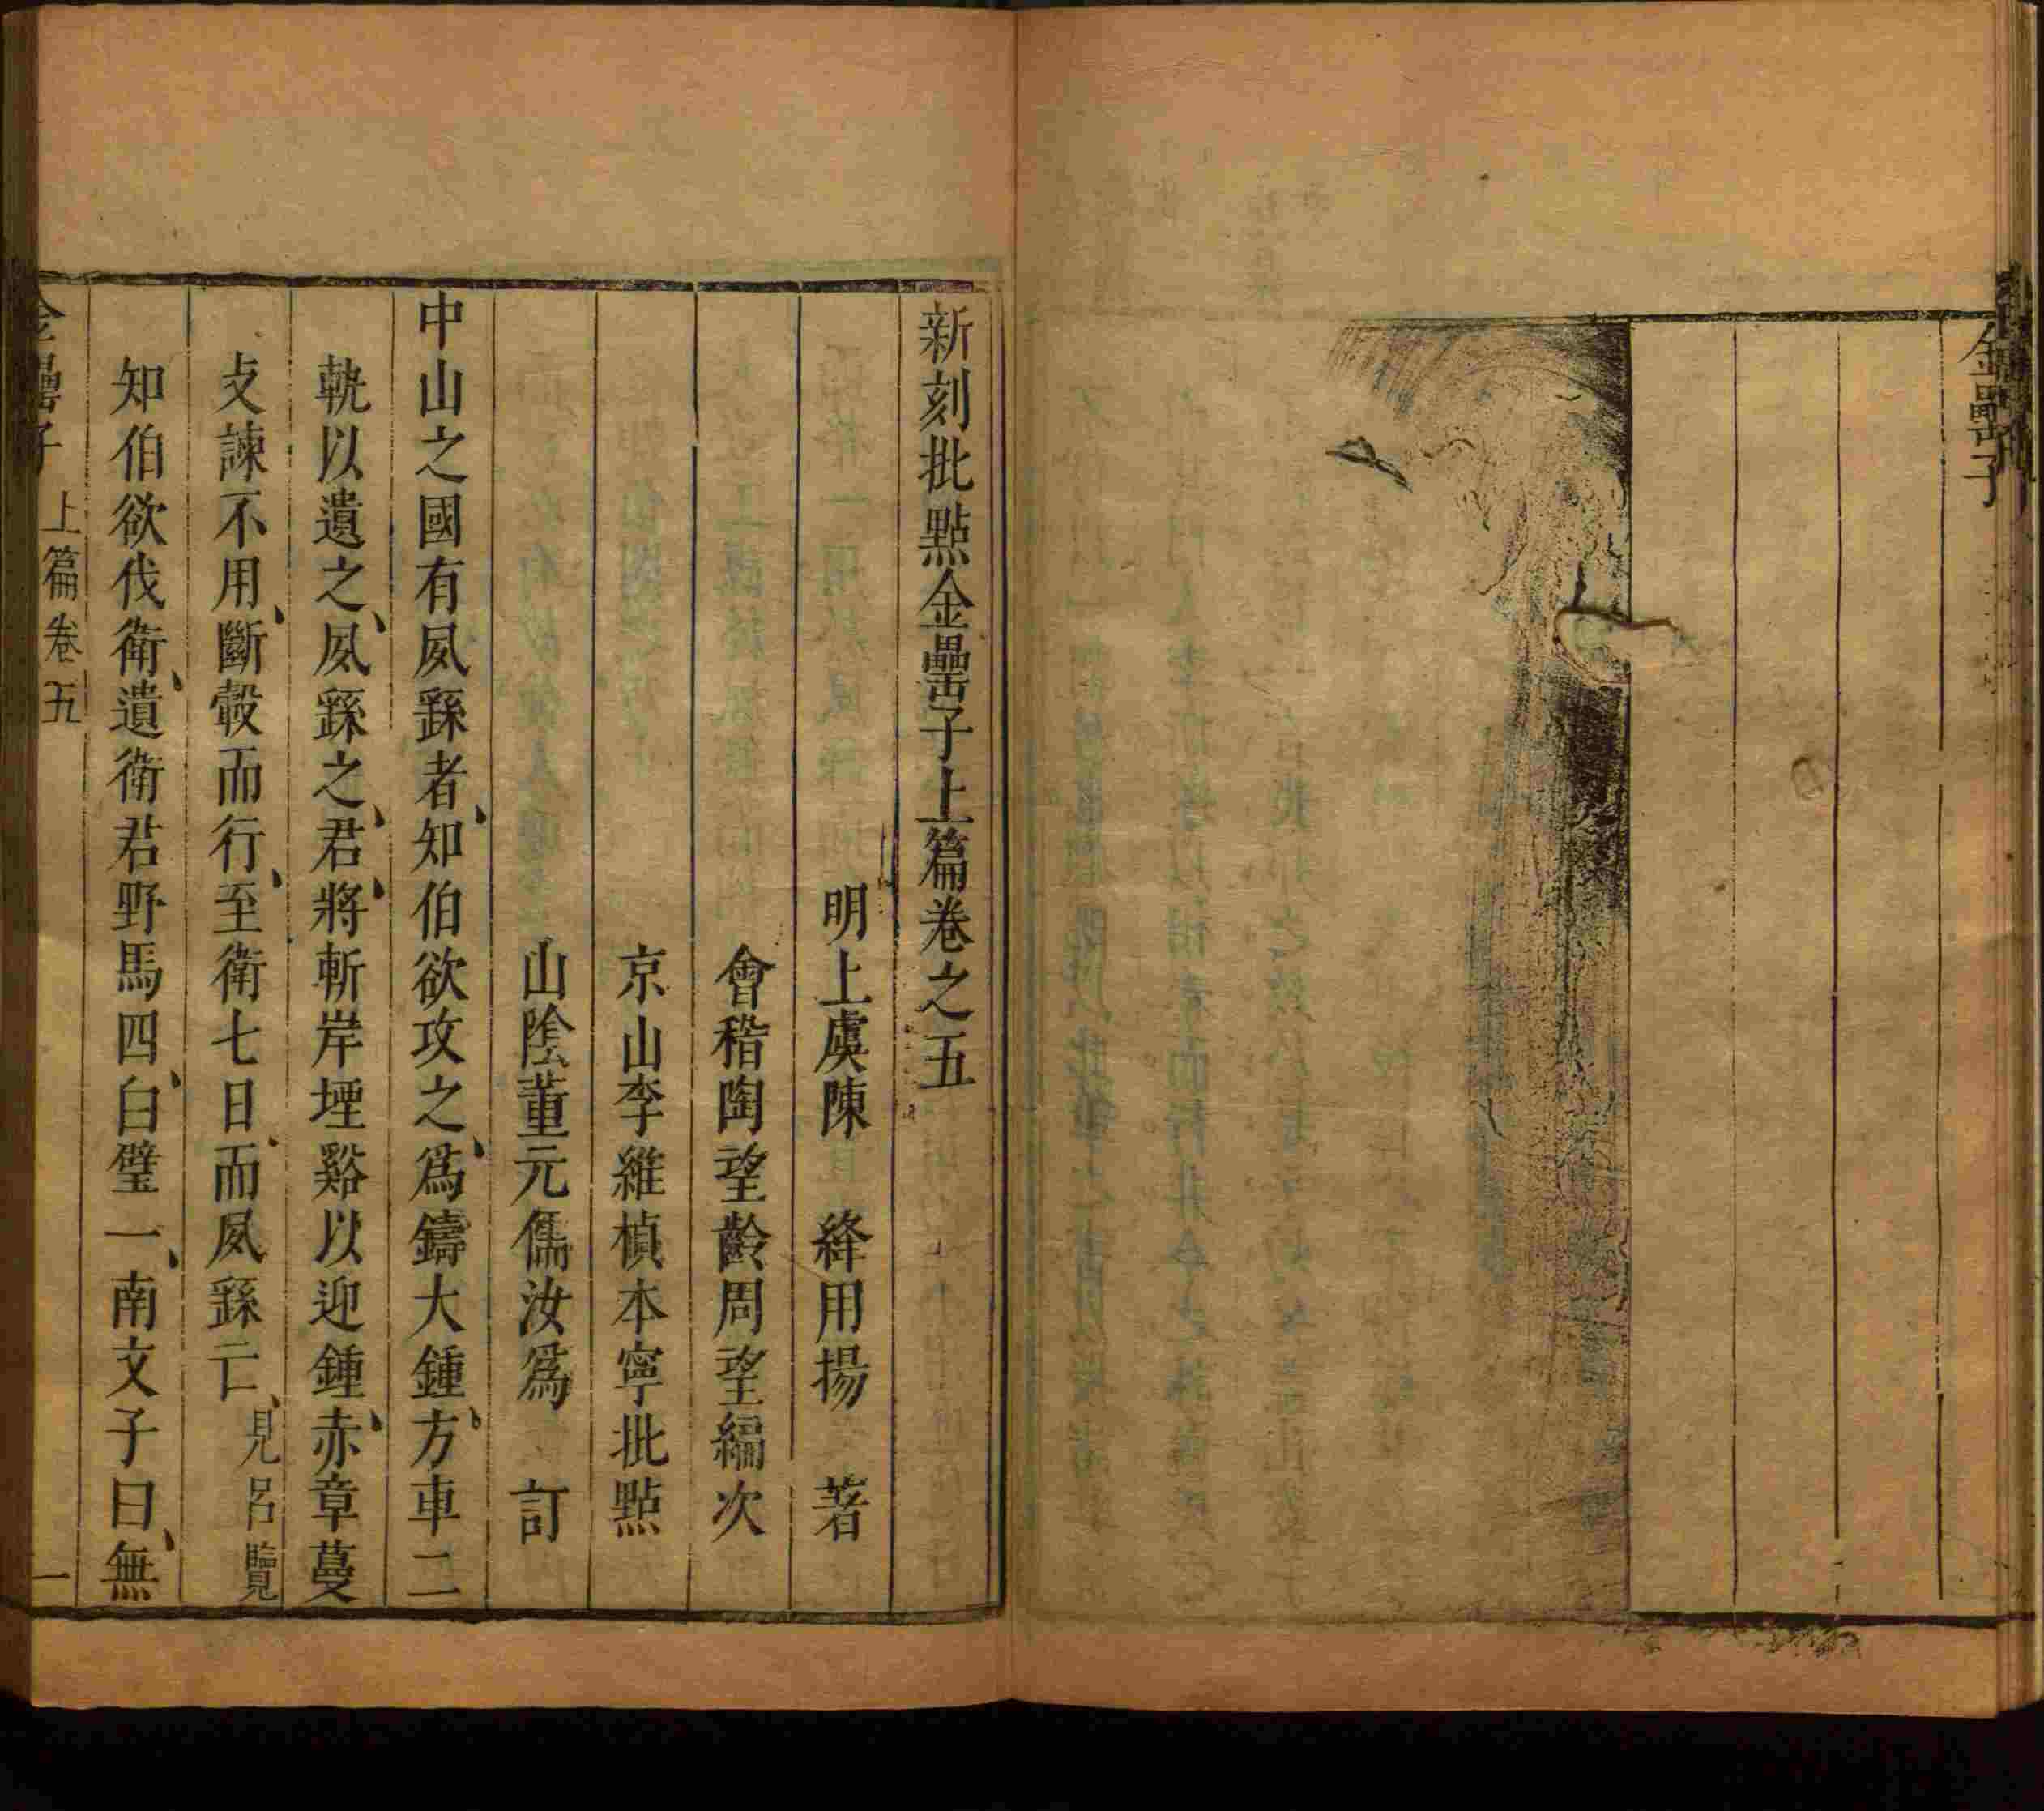 金罍子
新刻批點金罍子上篇卷之五
明上虞陳 絳用揚 著
會稽陶望齡周望編次
京山李維楨本寧批點
山陰董元儒汝爲 訂
中山之國有夙繇者知伯欲攻之爲鑄大鍾方車二
軌以遺之夙繇之君將斬岸堙谿以迎鍾赤章蔓
攴諫不用斷轂而行至衛七日而夙繇亡見呂覽
知伯欲伐衛遺衛君野馬四白璧一南文子曰無
金罍子 上篇卷五 一